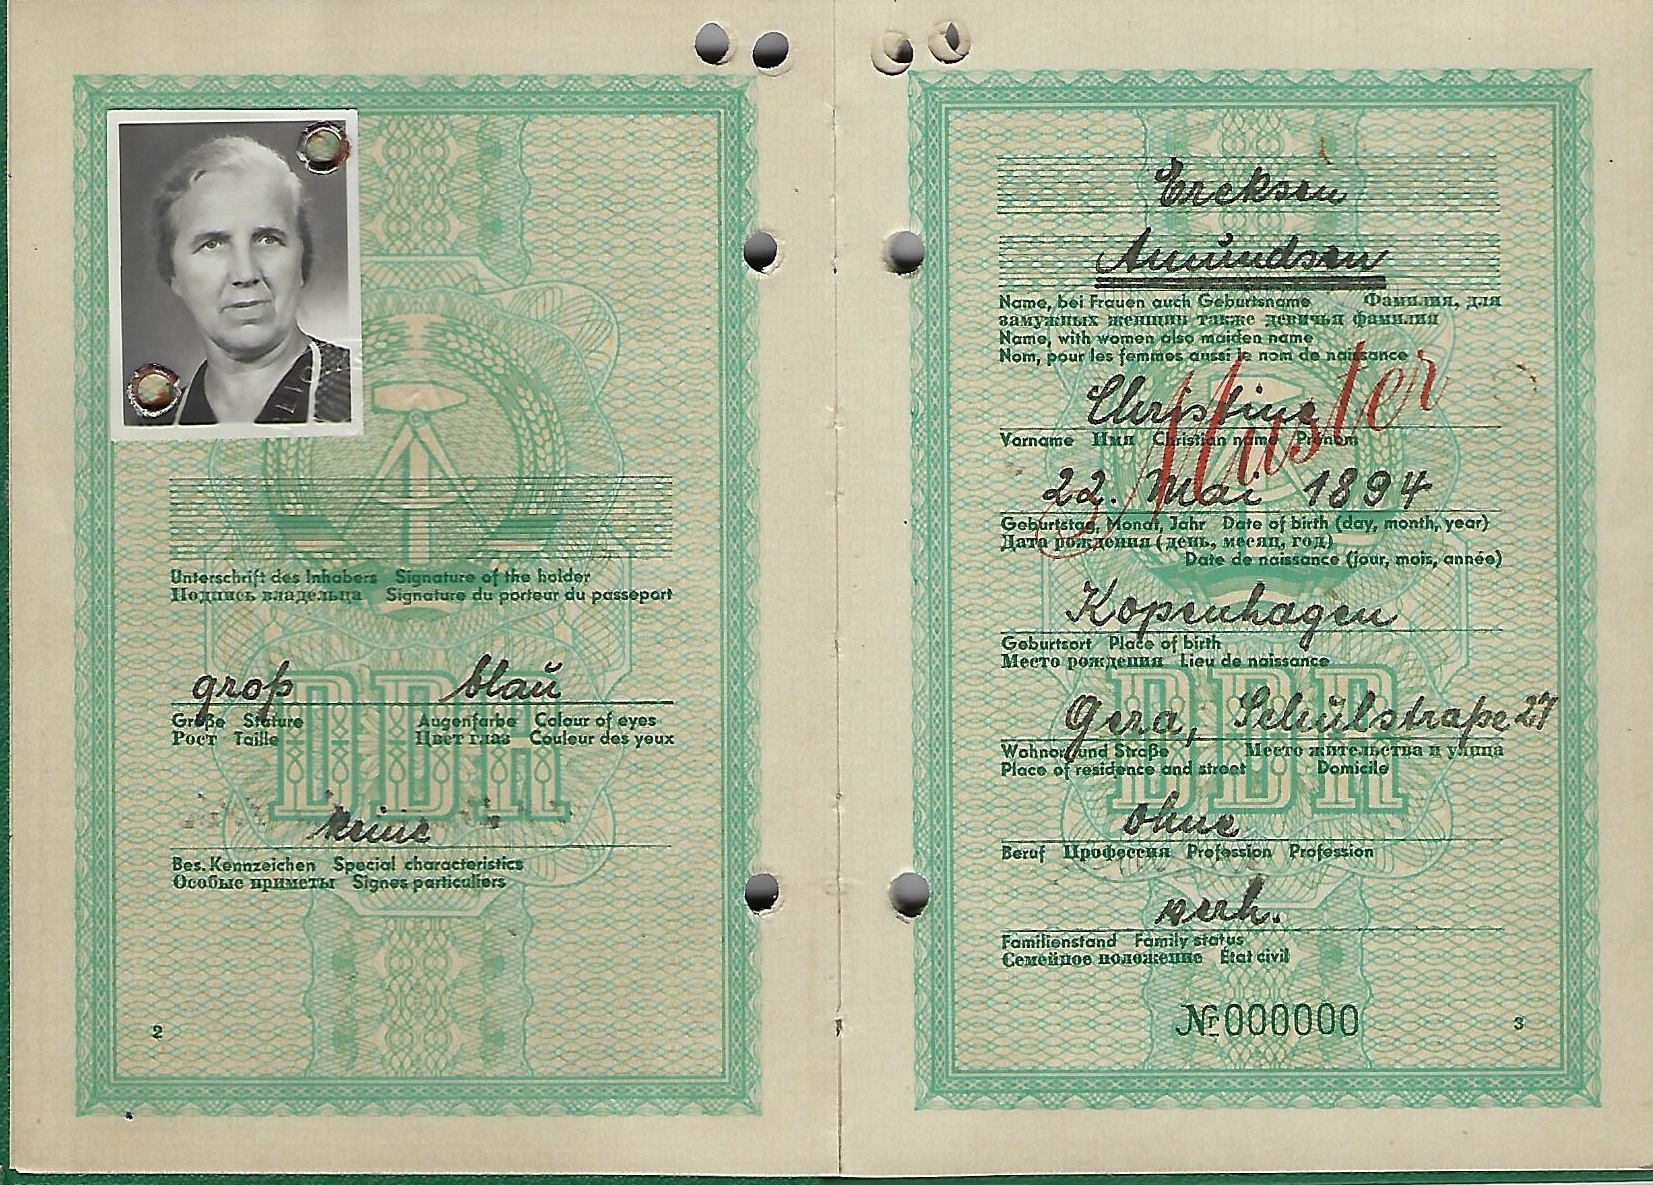 Unterschrift des Inhabers Signature of the holder
Подпись владельца Signature du porteur du passeport
groß blaŭ
Größe Stature Augenfarbe Colour of eyes
Рост Taille Цвет глаз Couleur des yeux
DDR
keine
Bes. Kennzeichen Special characteristics
Особые приметы Signes particuliers
2
Ericksen
Amŭndsen
Name, bei Frauen auch Geburtsname Фамилия, для
замужных женщин также девичья фамилия
Name, with women also maiden name
Nom, pour les femmes aussi le nom de naissance
Christine
Muster
Vorname Имя Christian name Prénom
22. Mai 1894
Geburtstag, Monat, Jahr Date of birth (day, month, year)
Дата рождения (день, месяц, год)
Date de naissance (jour, mois, année)
Kopenhagen
Geburtsort Place of birth
Место рождения Lieu de naissance
DDR
Gera, Schŭlstraße 27
Wohnort und Straße Место жительства и улица
Place of residence and street Domicile
ohne
Beruf Профессия Profession Profession
verh.
Familienstand Family status
Семейное положение État civil
Nr 000000
3